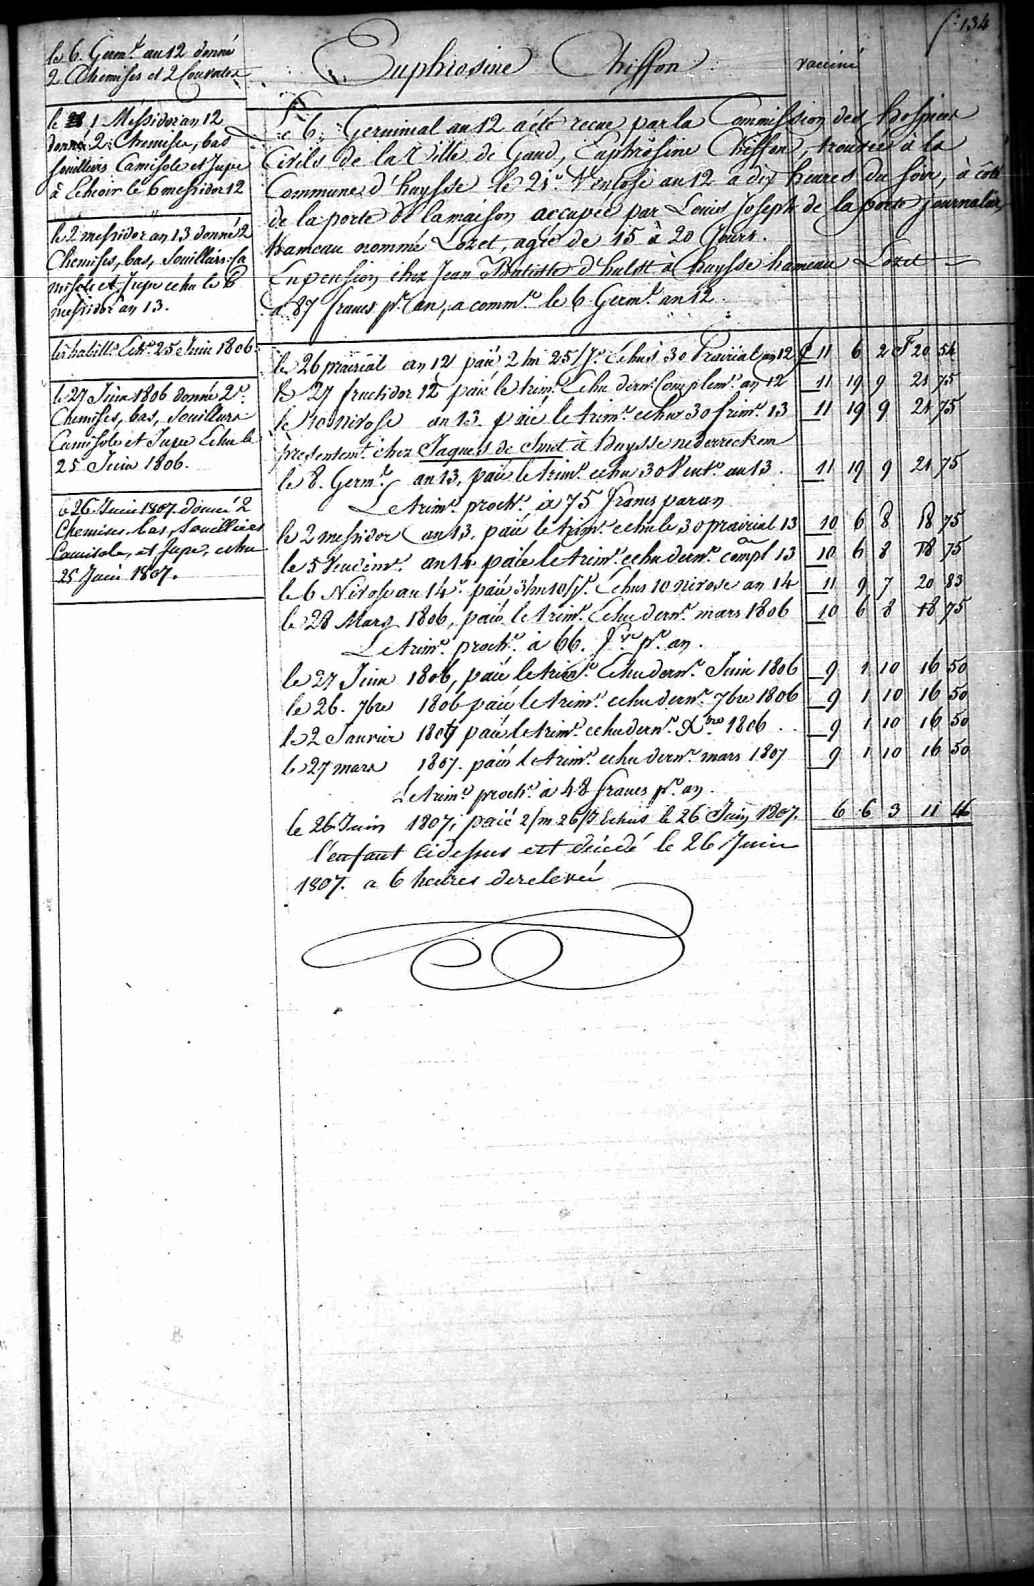 f:° 134
Euphrosine Chiffon
vacciné
le 6 Germ.l an 12 donné
2 Chemises et 2 Couvertes
le 1 Messidor an 12
donné 2 Chemises, bas
souilliers Camisole et Jupe
à Echoir le 6 messidor 12
le 2 messidor an 13 donné 2
Chemises, bas, Souilliers, Ca
misole et Jupe echu le 6
messidor an 13.
les habill.s Ech.s 25 Juin 1806.
le 27 Juin 1806 donné 2.
Chemises, bas, Souilliers
Camisole et Jupe Echu le
25 Juin 1806.
le 26 Juin 1807. donné 2
Chemises bas, souilliers
Camisole, et Jupe, echu
25 Juin 1807.
Le 6 Germinal an 12 a été recue par la Commission des hospices
Civils de la Ville de Gand, Euphrosine Chiffon, trouvée à la
Commune d'huysse le 21.e Ventose an 12 a dix heures du soir, à côté
de la porte de la maison occupée par Louis Joseph de la porte journalier,
hameau nommé Lozet, agée de 15 à 20 Jours.
En pension chez Jean Baptiste d'hulst à huysse hameau Lozet
a 87 francs p.r an, a comm.cé le 6 Germ.l an 12.
le 26 prairial an 12 paié 2/m 25/j.s Echus 30 Prairial an 12 £ 11 6 2 F 20 54
le 27 fructidor 12 paié le trim.e Echu dern.r Complem.e an 12 11 19 9 21 75
le 10 Nivose an 13 paié le trim.e echu 30 frim.e 13 11 19 9 21 75
presentem.t chez Jaques de Smet à huysse nederreckem
le 8. Germ.l an 13, paié le trim.e echu 30 Vent.e an 13. 11 19 9 21 75
Le trim.e proch.n à 75 francs par an
le 2 messidor an 13. paié le trim.e echu le 30 prairial 13 10 6 8 18 75
le 5 Vendém.e an 14 paié le trim.e echu dern.r compl 13 10 6 8 18 75
le 6 Nivose an 14. paié 3/m 10/j.s Echus 10 nivose an 14 11 9 7 20 83
le 28 Mars 1806, paié le trim.e Echu dern.r mars 1806 10 6 8 18 75
Le trim.e proch.n à 66. f.cs p.r an.
le 27 Juin 1806, paié le trim.e Echu dern.r Juin 1806 9 1 10 16 50
le 26. 7bre 1806 paié le trim.e echu dern.r 7bre 1806 9 1 10 16 50
le 2 Janvier 1807 paié le trim.e echu dern.r X.bre 1806 9 1 10 16 50
le 27 mars 1807. paié le trim.e echu dern.r mars 1807 9 1 10 16 50
Le trim.e proch.n à 48 francs p.r an.
le 26 Juin 1807, paié 2/m 26/j echus le 26 Juin 1807. 6 6 3 11 46
l'enfant cidessus est décédé le 26 Juin
1807. a 6 heures de relevée